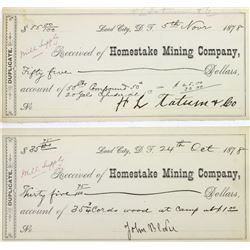 $ 85.00/100 Lead City, D. T. 5th Novr 1878
DUPLICATE.
Mill Supply
Received of Homestake Mining Company,
Fifty five Dollars,
account of 50 lbs Compound 50¢
20 Gals Cylinder oil
No H L Tatum & Co
$ 35 75/100 Lead City, D. T. 24th Oct 1878
DUPLICATE.
Mill Supply
Received of Homestake Mining Company,
Thirty five 75/100 Dollars,
account of 35¾ Cords wood at camp at
No John